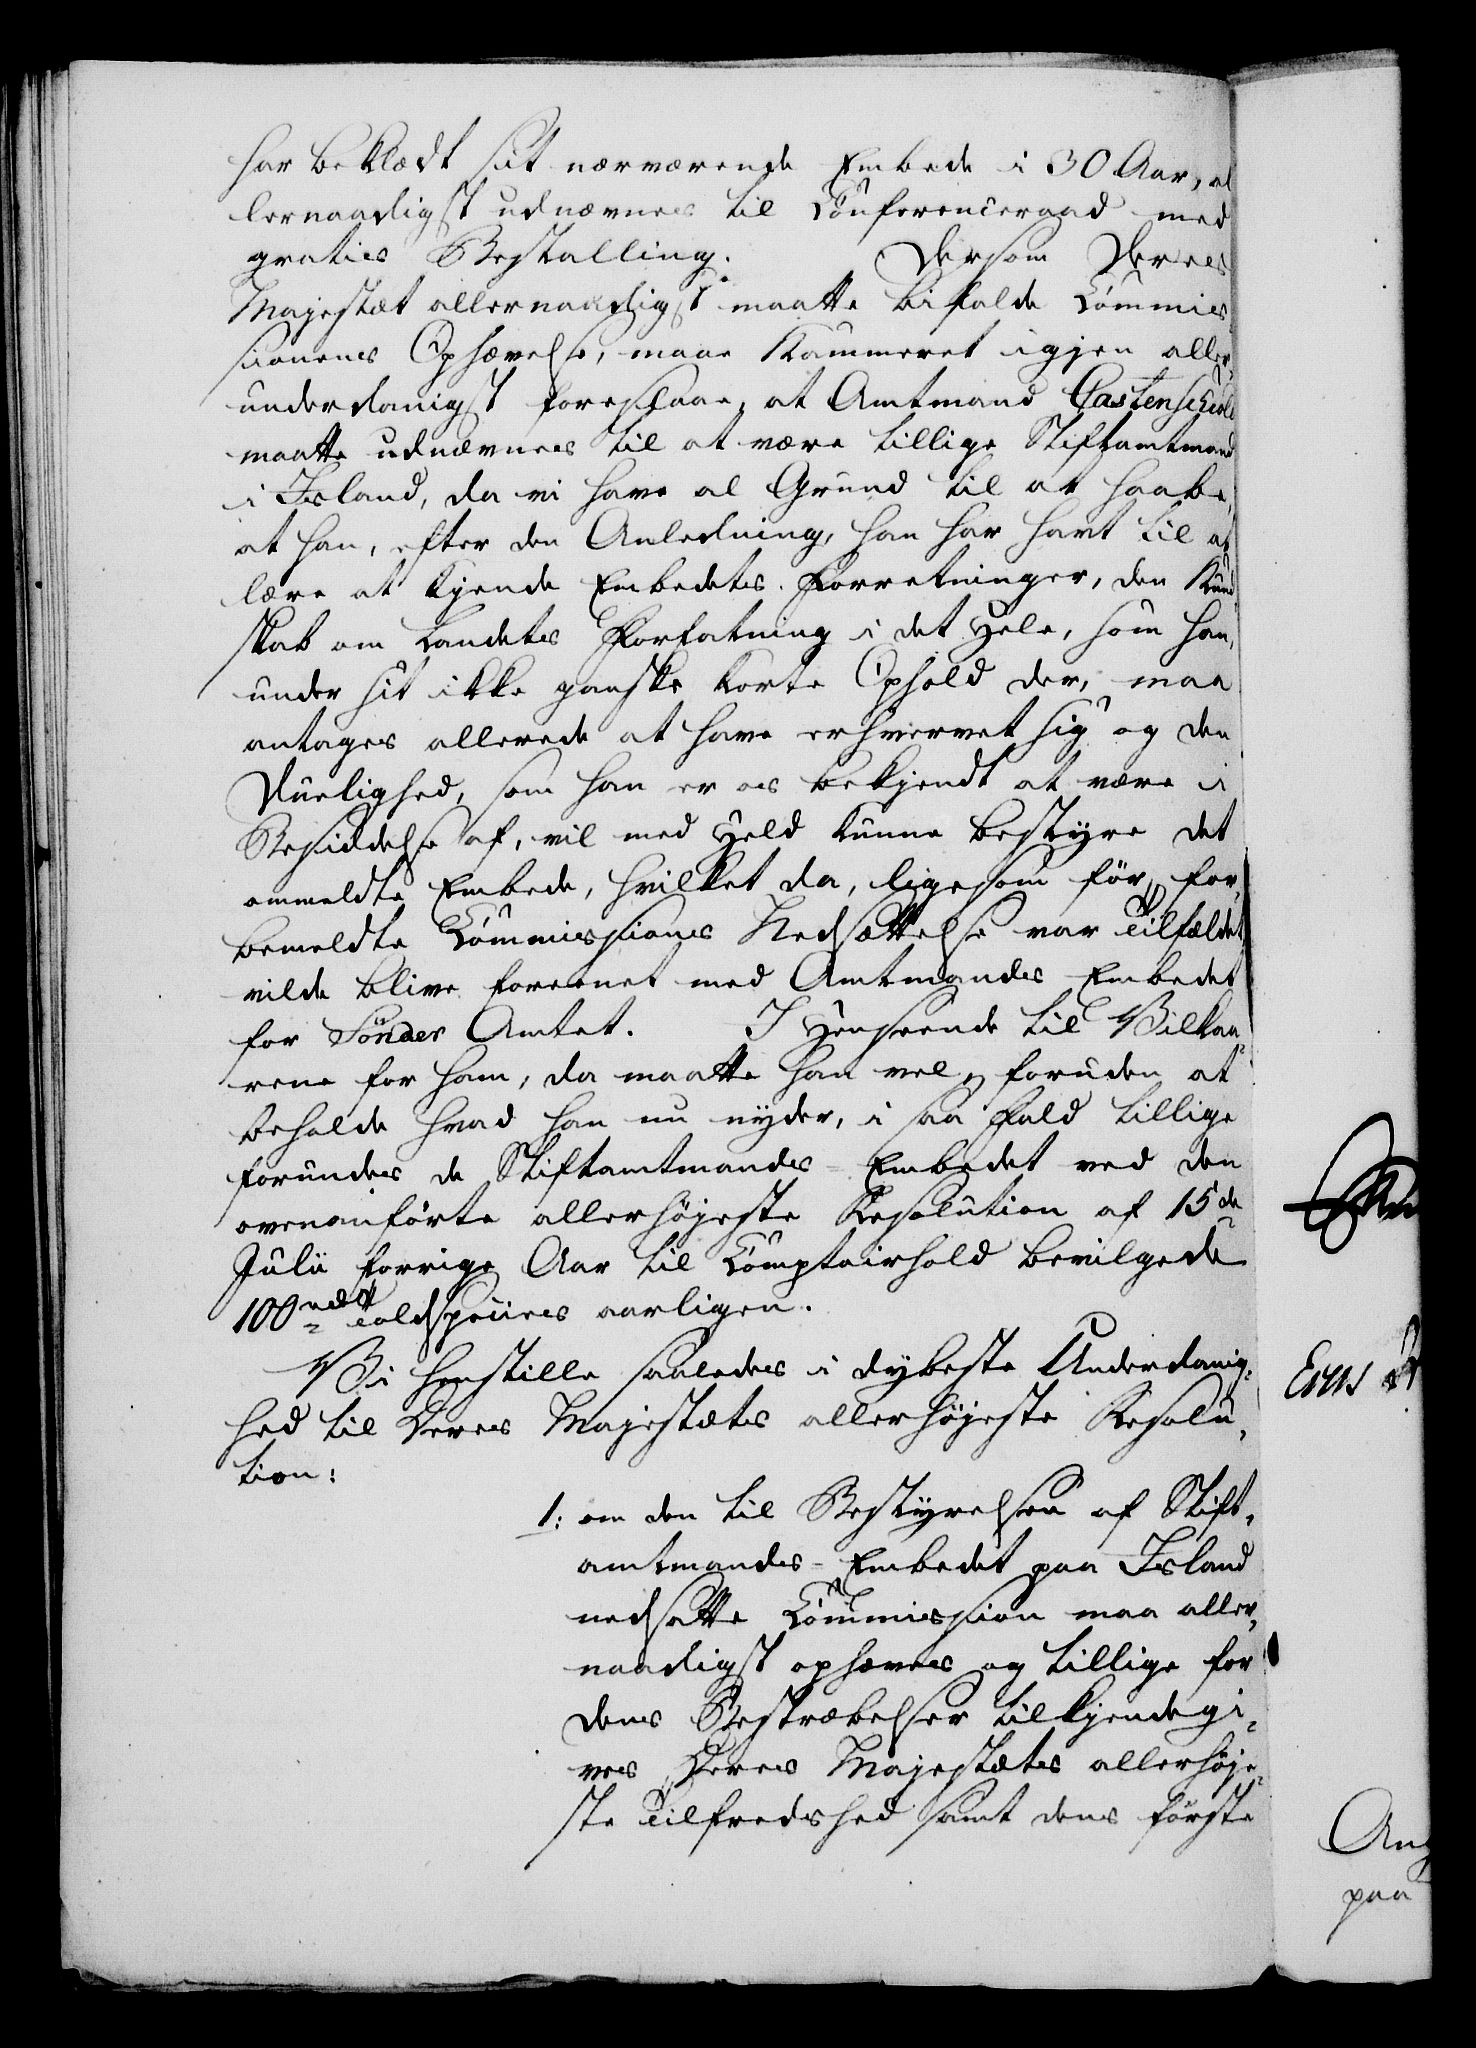 har beklædt sit nærværende Embede i 30 Aar, al
lernaadigst udnævnes til Conferenceraad med
gratis Bestalling. Dersom Deres
Majestæt allernaadigst maatte bifalde Commis
sionens Ophævelse, maae Kammeret igjen aller,
underdanigst foreslaae, at Amtmand Castenschiold
maatte udnævnes til at være tillige Stiftamtmand
i Island, da vi have al Grund til at haabe,
at han, efter den Anledning, han har havt til at
lære at kjende Embedets Forretninger, den Kund
skab om Landets Forfatning i det Hele, som han,
under sit ikke ganske korte Ophold der, maa
antages allerede at have erhvervet sig og den
Duelighed, som han er os bekjendt at være i
Besiddelse af, vil med Held kunne bestyre det
ommeldte Embede, hvilket da, ligesom før for,
bemeldte Commissions Nedsættelse var Tilfældet
vilde blive foreenet med Amtmands Embedet
for Sønder Amtet. I Henseende til Vilkaa-
rene for ham, da maatte han vel, foruden at
beholde hvad han nu nyder, i saa Fald tillige
forundes de Stiftamtmands-Embedet ved den
ovenanførte allerhøjeste Resolution af 15de
Julii forrige Aar til Comptoirhold bevilgede
100 rdlr aarligen.
Vi henstille saaledes i dybeste Underdanig-
hed til Deres Majestæts allerhøjeste Resolu,
tion:
1: om den til Bestyrelsen af Stift,
amtmands-Embedet paa Island
nedsatte Commission maa aller,
naadigst ophæves og tillige for
dens Bestræbelser tilkjendegi-
ves Deres Majestæts allerhøje-
ste Tilfredshed samt dens første
Ang
paa